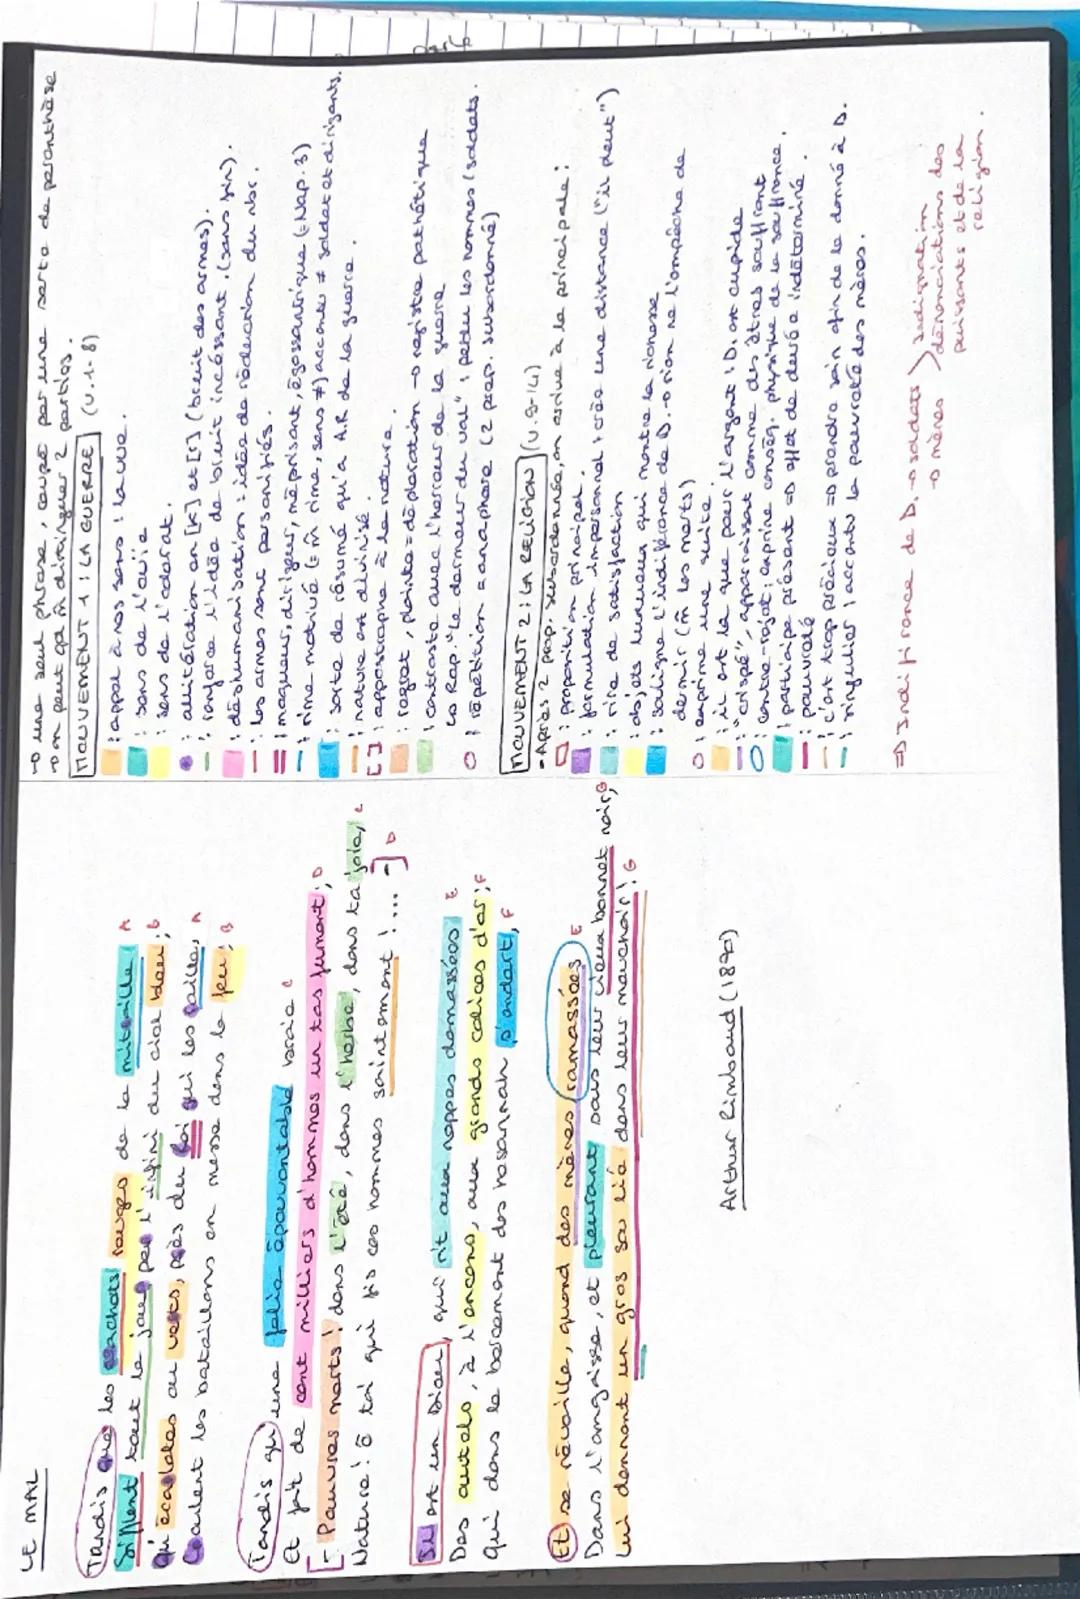 LE MAL
Tandis que les crachats rouges de la mitraille A
Sifflent tout le jour par l'infini du ciel bleu ; B
Qu'écarlates ou verts, près du Roi qui les raille, A
Croulent les bataillons en masse dans le feu ; B
Tandis qu'une folie épouvantable broie C
Et fait de cent milliers d'hommes un tas fumant ; D
[- Pauvres morts ! dans l'été, dans l'herbe, dans ta joie, C
Nature ! ô toi qui fis ces hommes saintement ! ... -] D
Il est un Dieu, qui rit aux nappes damassées E
Des autels, à l'encens, aux grands calices d'or ; F
Qui dans le bercement des hosannah s'endort, F
Et se réveille, quand des mères ramassées E
Dans l'angoisse, et pleurant sous leur vieux bonnet noir, G
Lui donnent un gros sou lié dans leur mouchoir ! G
Arthur Rimbaud (1870)
-> une seul phrase, coupé par une sorte de paranthèse
-> on peut qd m̂ distinguer 2 parties.
MOUVEMENT 1 : LA GUERRE (v.1-8)
: appel à nos sens : la vue.
: sens de l'ouïe
: sens de l'odorat.
: allitération en [k] et [r] (bruit des armes).
: renforce l'idée de bruit incéssant, (sans fin).
: déshumanisation : idée de réduction du nbr.
: les armes sont personifiés.
: moqueur, dirigeur, méprisant, égoscentrique (= Nap. 3)
: rime motivé (= m̂ rime, sens ≠) accentue ≠ soldat et dirigeants.
: sorte de résumé qu'a A.R de la guerre.
: nature est divinisé.
[ ] : appostrophe à la nature.
: regret, plainte = déploration -> registre pathétique
: contraste avec l'horreur de la guerre
Rap. "le dormeur du val" : perdu les hommes (soldats.
: répétition = anaphore (2 prop. subordonné)
MOUVEMENT 2 : LA RELIGION (v.9-14)
- Après 2 prop. subordonnée, on arrive à la principale :
: proposition principal.
: formulation impersonnel : crée une distance ("il pleut")
: rire de satisfaction
: objets lumineux qui montre la richesse
: souligne l'indiférence de D. -> rien ne l'empêche de
dormir (m̂ les morts)
: exprime une suite.
: il est là que pour l'argent : D. est cupide
: "crispé", apparaissent comme des êtres souffrant
: contre-rejet : exprime conséq. physique de la souffrance.
: participe présent => effet de durée indéterminé.
: pauvreté
: c'est trop précieux => prendre soin afin de le donné à D.
: singulier : accentu la pauvreté des mères.
=> Indifférence de D. -> soldats ) indignation
-> mères ) dénonciations des
puissants et de la
religion.